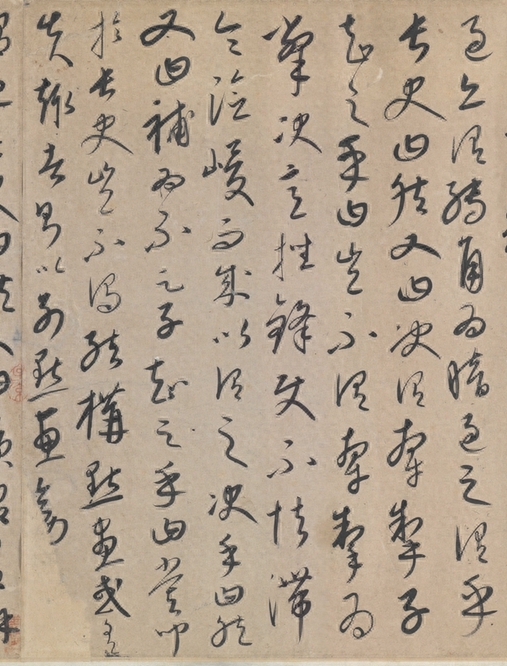 過亦謂轉角為暗過之謂乎
長史曰然又曰決謂牽掣子
知之乎曰豈不謂牽掣為
決意挫鋒使不怯滯
令險峻而成以謂之決乎曰然
又曰補為不足子知之乎曰嘗聞
於長史豈不謂結構點畫或有
失趣者則以別點畫旁